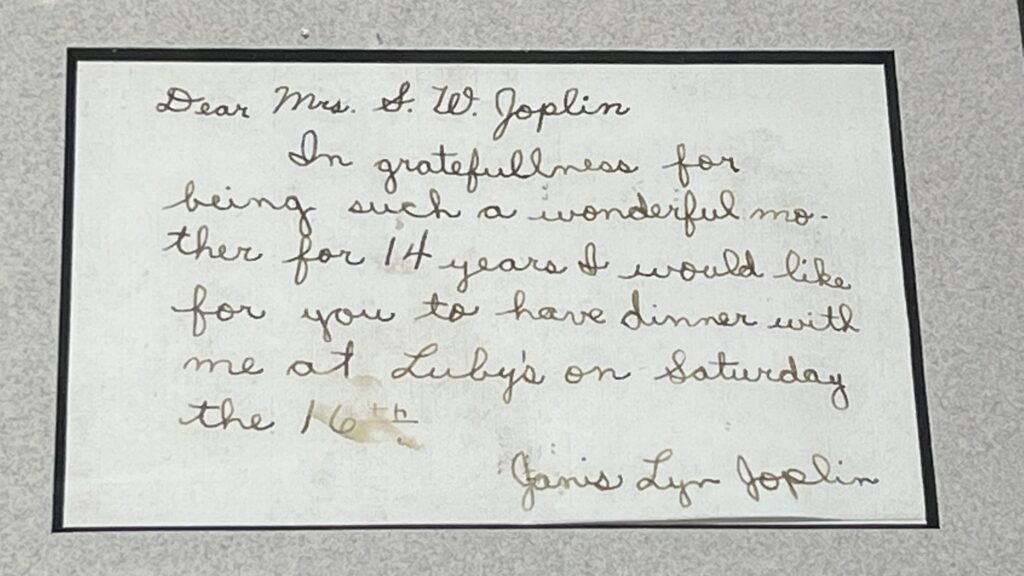 Dear Mrs. S. W. Joplin
In gratefullness for
being such a wonderful mo-
ther for 14 years I would like
for you to have dinner with
me at Luby's on Saturday
the 16th.
Janis Lyn Joplin